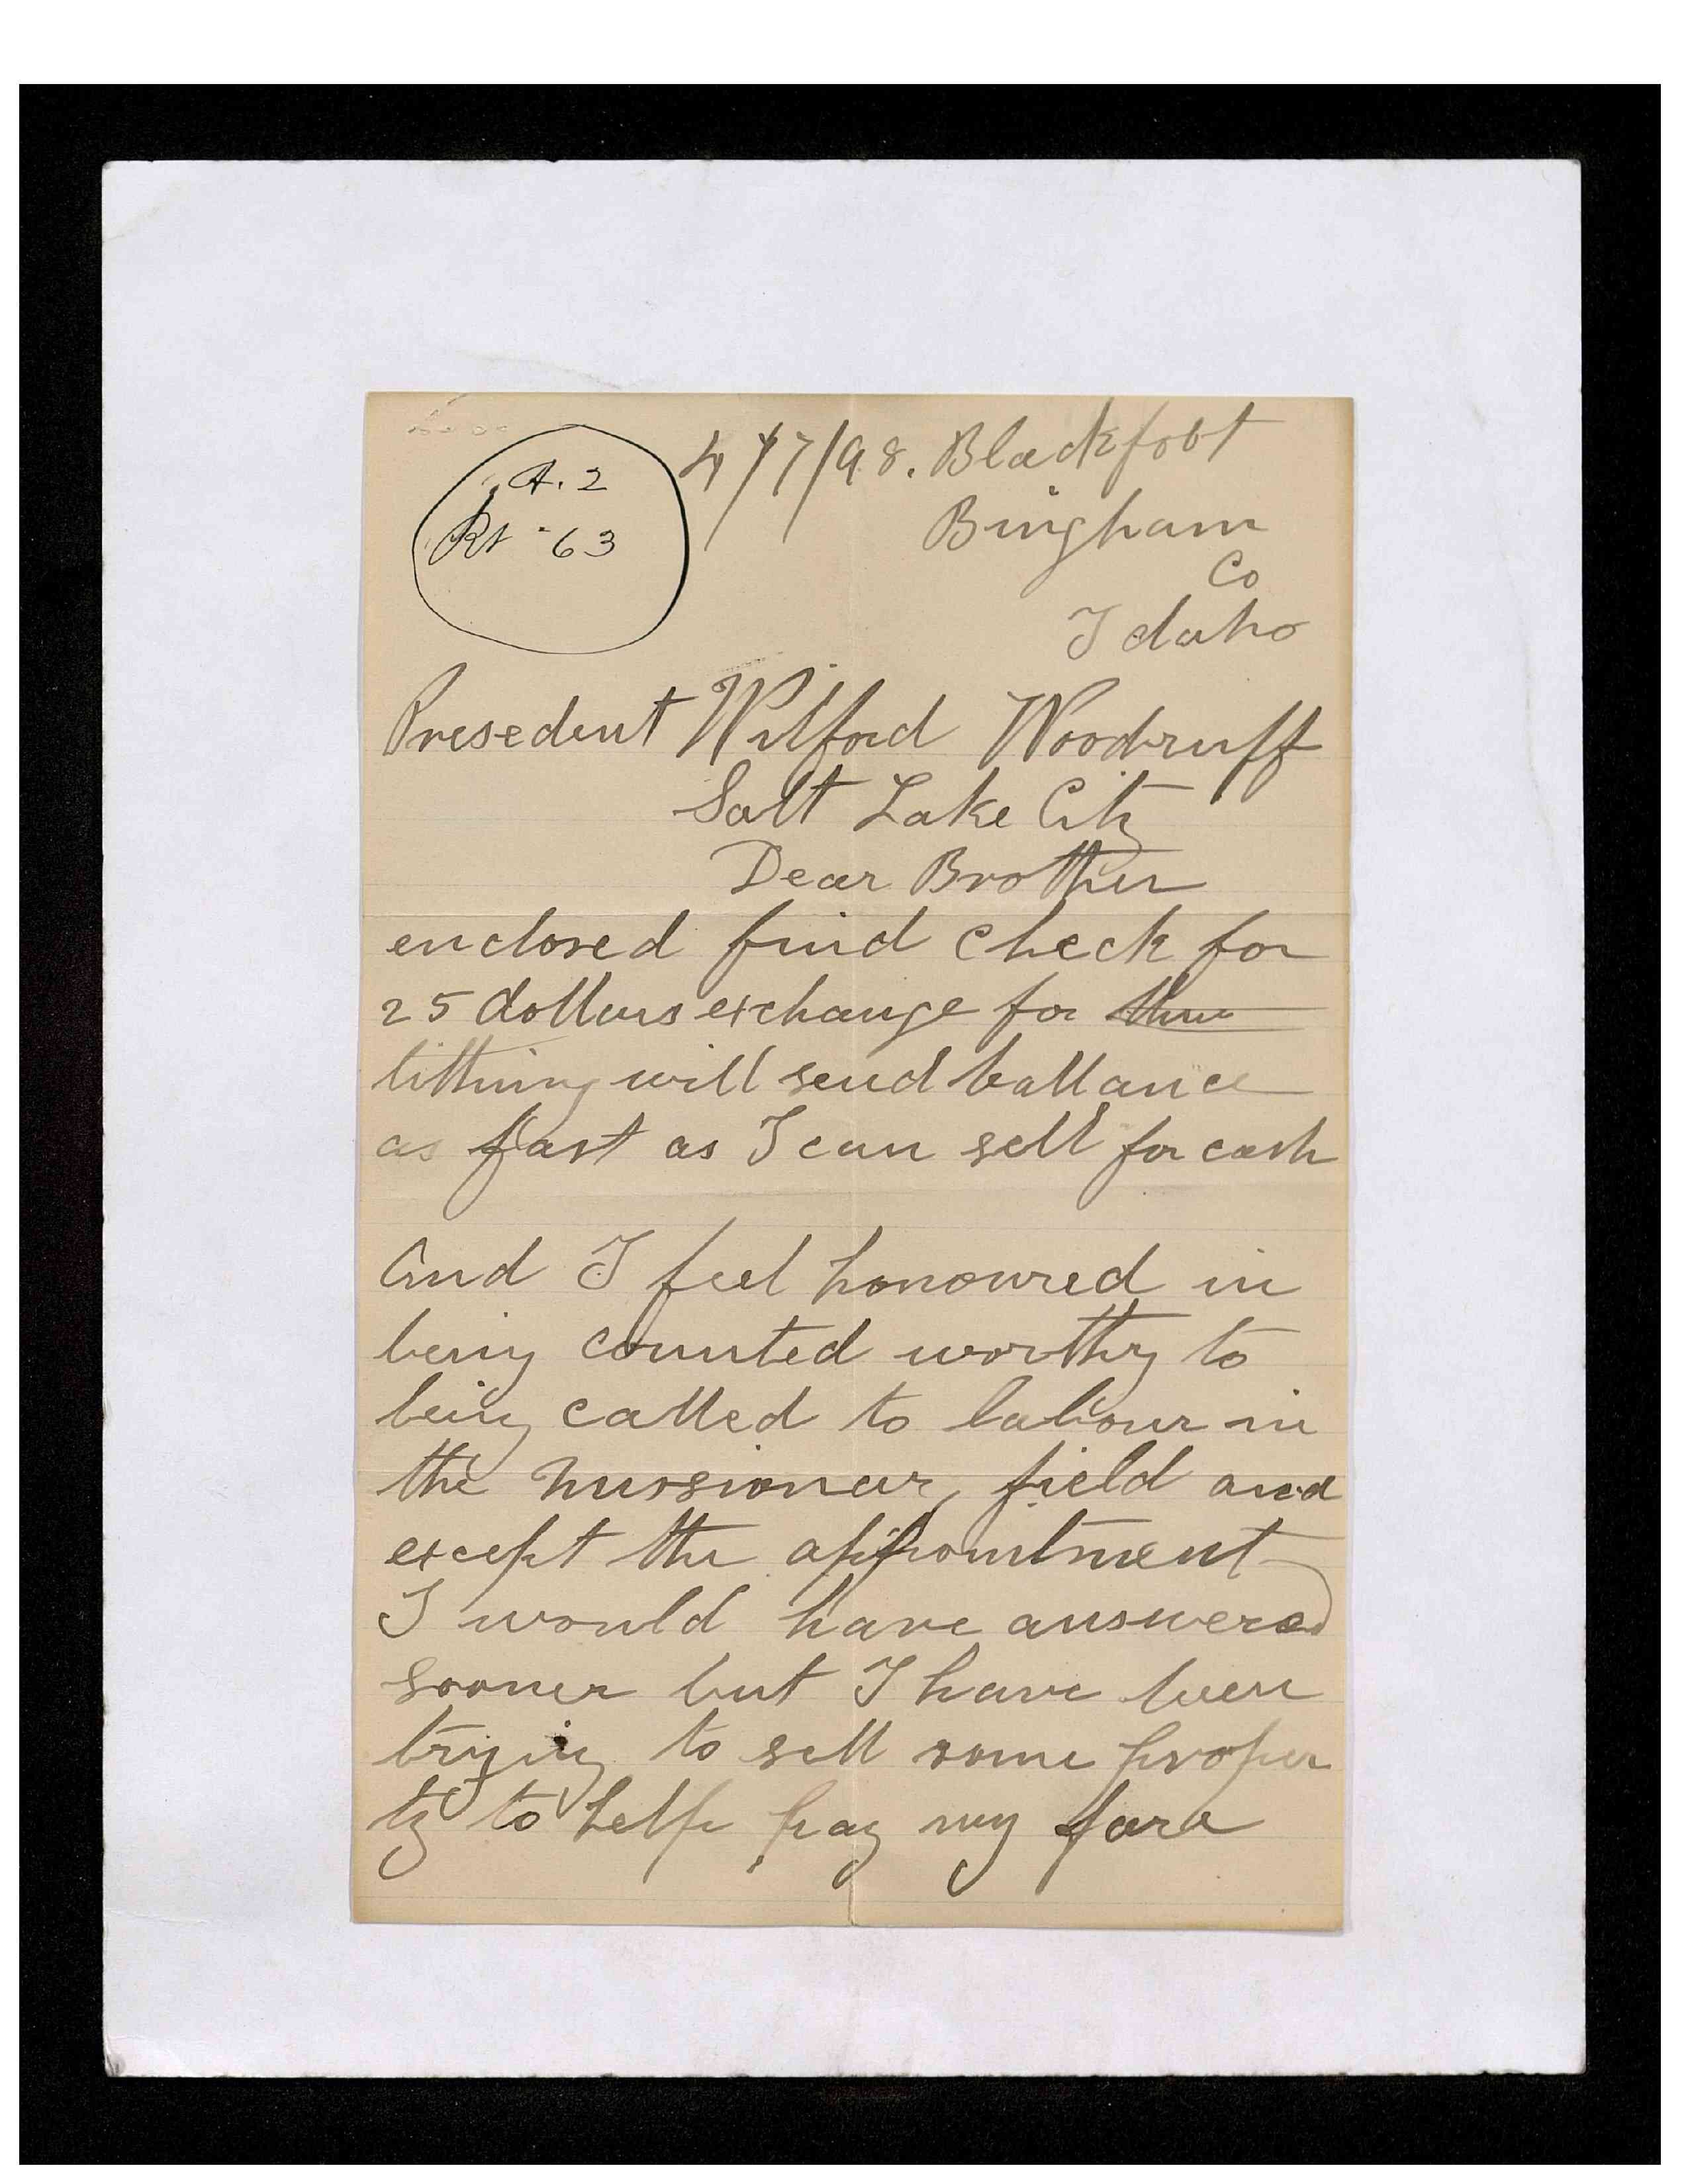 4/7/98. Blackfoot
A. 2
Rt. 63
Bingham
Co
Idaho
Presedent Wilford Woodruff
Salt Lake City
Dear Brother
enclosed find check for
25 dollars exchange for
tithing will send ballance
as fast as I can sell for cash
And I feel honoured in
being counted worthy to
being called to labour in
the missionary field and
except the appointment
I would have answered
sooner but I have been
trying to sell some proper
ty to help pay my fare